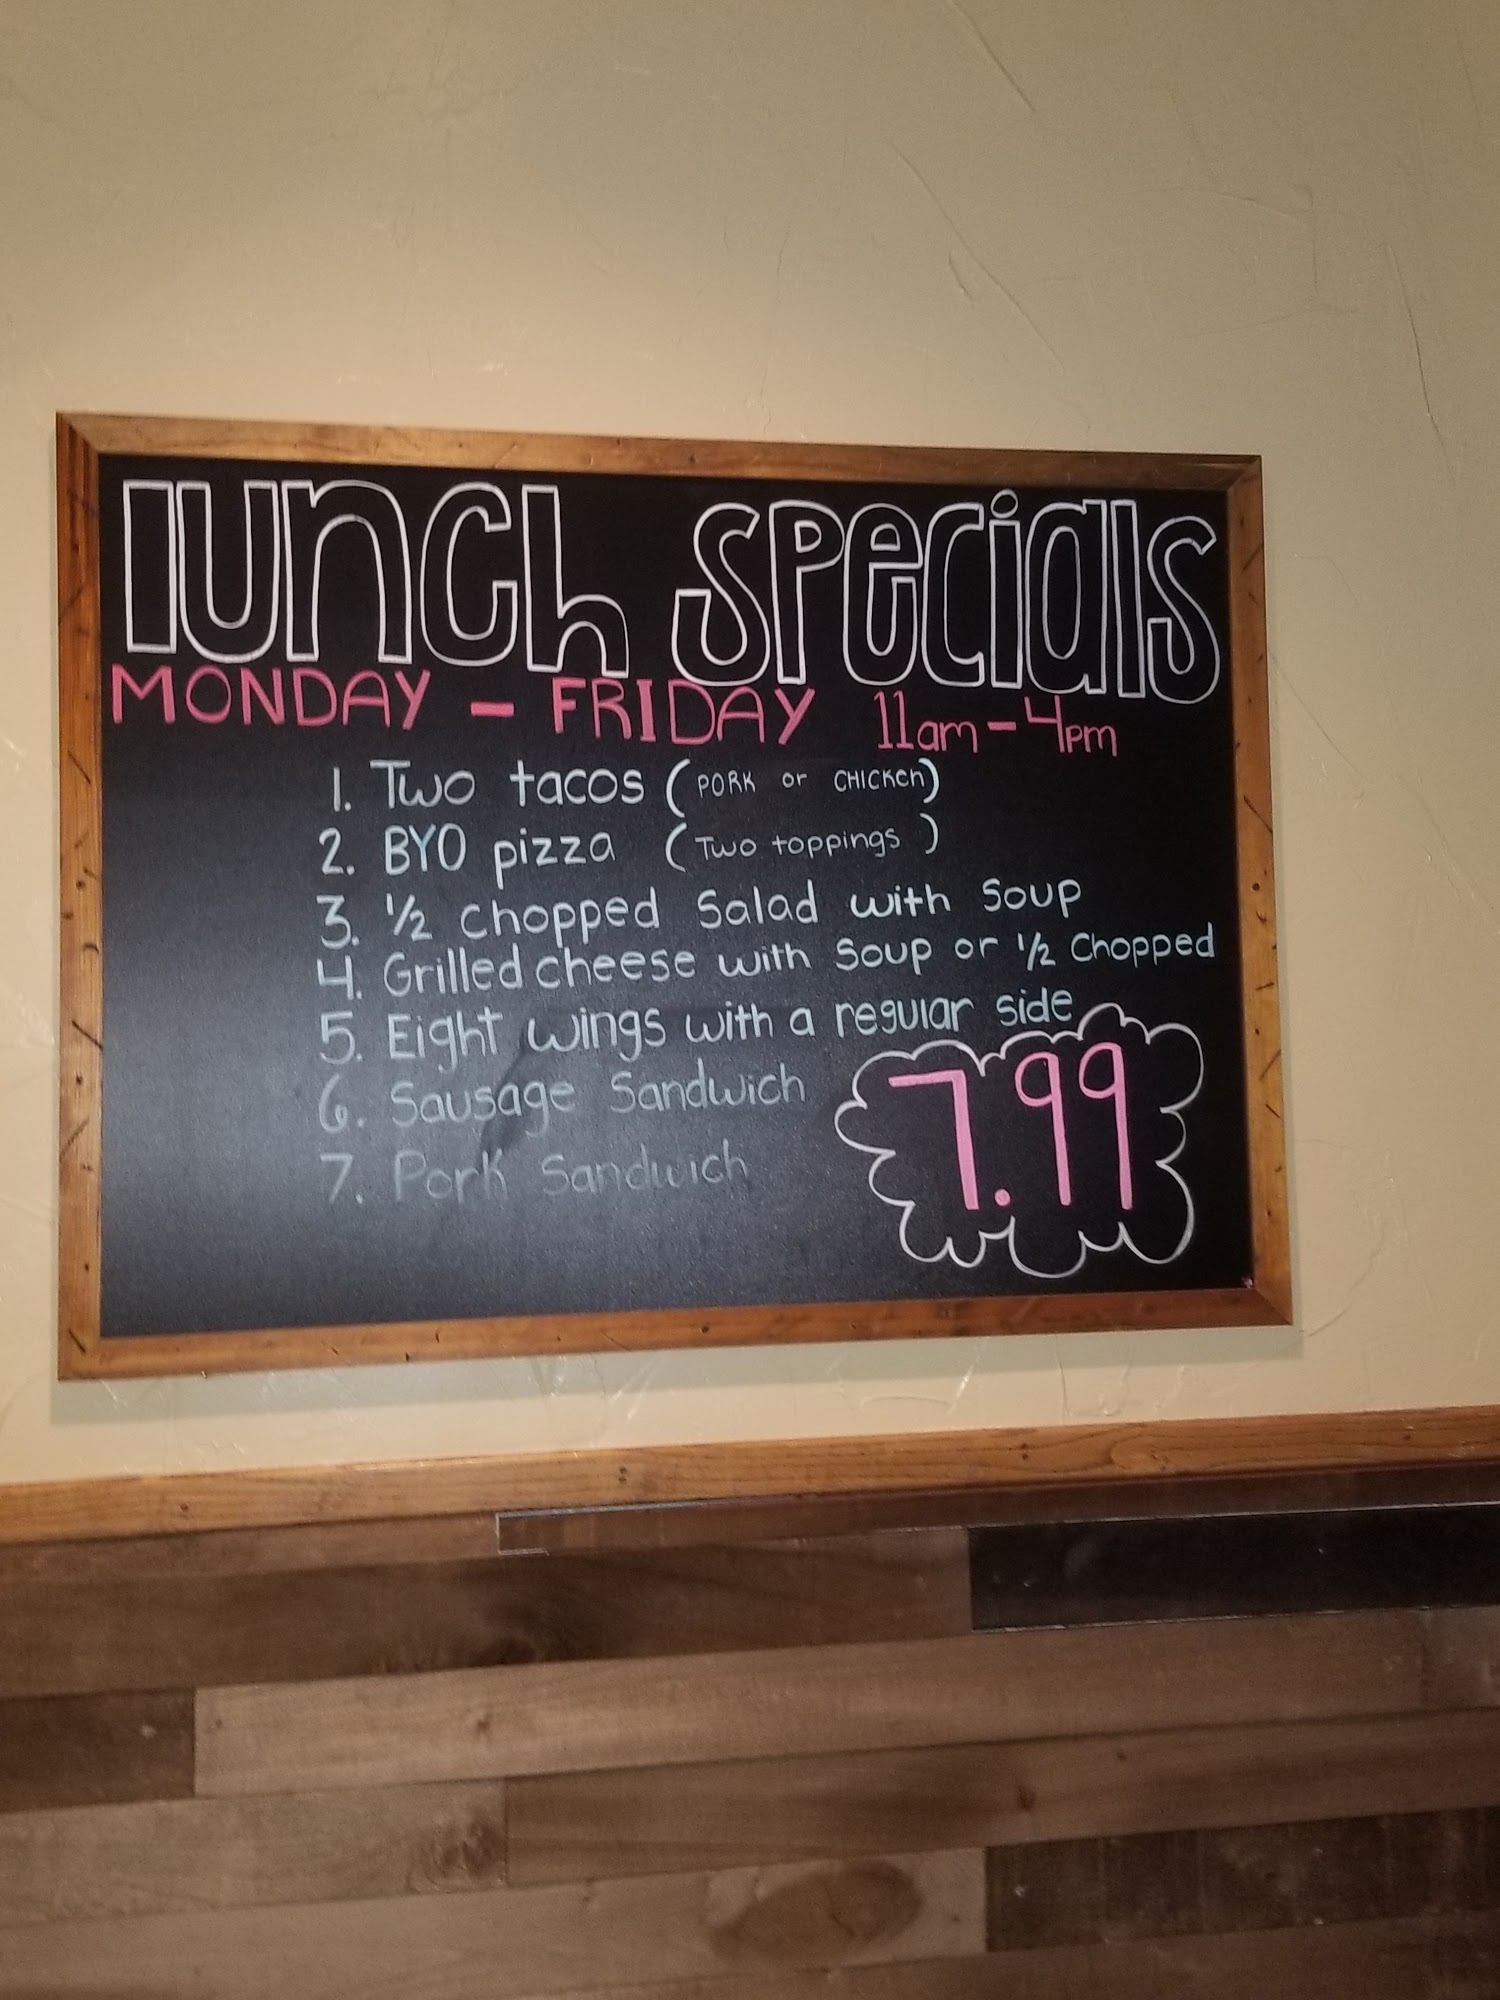 lunch specials
MONDAY - FRIDAY 11am - 4pm
1. Two tacos (PORK or CHICKEN)
2. BYO pizza (Two toppings)
3. 1/2 Chopped Salad with Soup
4. Grilled cheese with Soup or 1/2 Chopped
5. Eight wings with a regular side
6. Sausage Sandwich
7. Pork Sandwich
7.99